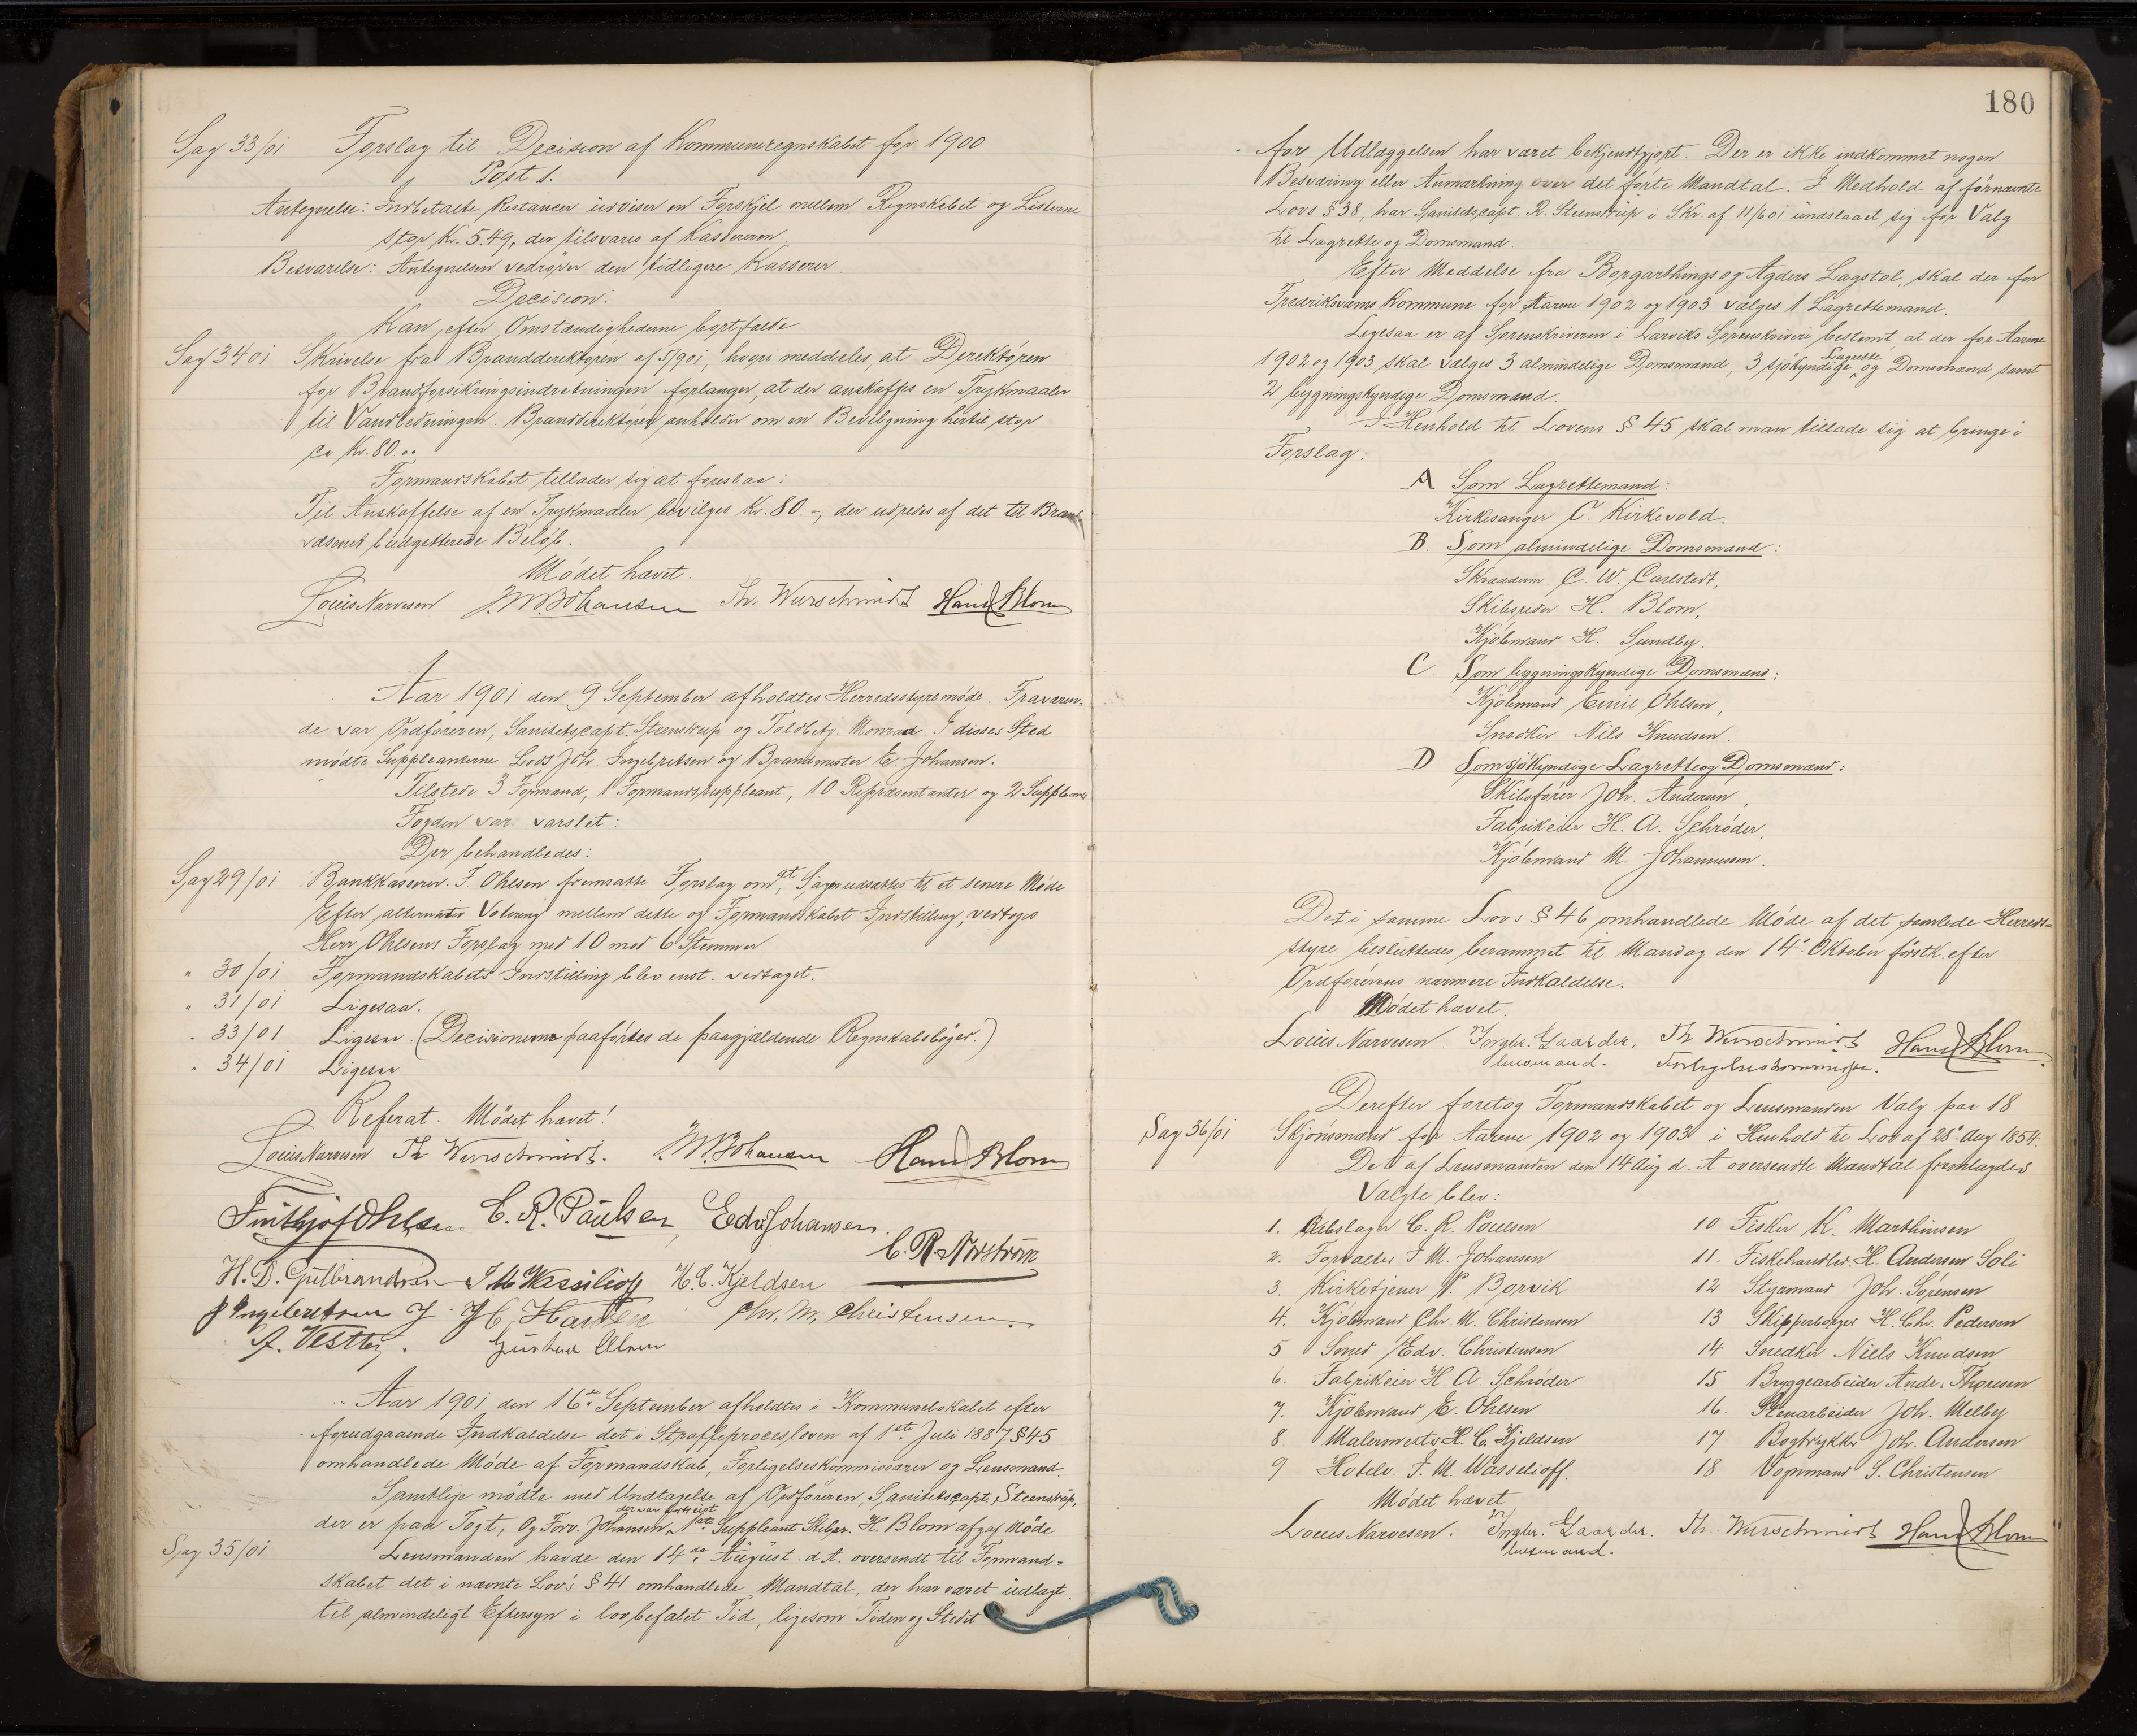 Sag 33/01 Forslag til Decision af Kommuneregnskabet for 1900
Post 1.
Antegnelse: Indbetalte Restancer udviser en Forskjel mellem Regnskabet og Listerne
stor Kr. 5.49, der tilsvares af Kassereren.
Besvarelse: Antegnelsen vedrører den tidligere Kasserer.
Decision:
Kan efter Omstændighederne bortfalde
Sag 34 01 Skrivelse fra Branddirektøren af 5/9 01, hvori meddeles, at Derektøren
for Brandforsikringsindretningen forlanger, at der anskaffes en Trykmaaler
til Vandledningen. Branddirektøren anholder om en Bevilgning hertil stor
ca Kr. 80.00
Formandskabet tillader sig at foreslaa:
Til Anskaffelse af en Trykmaaler bevilges Kr. 80.-, der udredes af det til Brand-
væsenet budgetterede Beløb.
Mødet hævet.
Louis Narvesen J. M. Johansen Th. Wurschmidt Hans Blom
Aar 1901 den 9 September afholdtes Herredsstyremøde. Fraværen-
de var Ordføreren, Sanitetscapt. Steenstrup og Toldbetj. Monrad. I disses Sted
mødte Suppleanterne Lods Joh. Ingebretsen og Brandmester E Johansen.
Tilstede 3 Formænd, 1 Formandssuppleant, 10 Repræsentanter og 2 Suppleanter
Fogden var varslet:
Der behandledes:
Sag 29/01 Bankkasserer F. Ohlsen fremsatte Forslag om at Sagen udsættes til et senere Møde
Efter alternativ Votering mellem dette og Formandskabet Indstilling, vedtoges
Herr Ohlsens Forslag med 10 mod 6 Stemmer
" 30/01 Formandskabets Indstilling blev enst. vedtaget.
" 31/01 Ligesaa.
" 33/01 Ligesaa. (Decisionerne paaførtes de paagjældende Regnskabsbøger.)
" 34/01 Ligesaa
Referat. Mødet hævet!
Louis Narvesen Th Wurschmidt. J. M. Johansen Hans Blom
Frithjof Ohlsen. C. R. Paulsen, Edv Johansen.
C. R. Norstrøm
H. D. Gulbrandsen J M Wassilioff H. C. Kjeldsen
J Ingebretsen J. H. C. Hansen Chr. M. Christensen.
A. Vestby. Gustav Olsen
Aar 1901 den 16de September afholdtes i Kommunelokalet efter
forudgaaende Indkaldelse det i Straffeprocesloven af 1ste Juli 1887 § 45
omhandlede Møde af Formandskab, Forligelseskommissærer og Lensmand.
Samtlige mødte med Undtagelse af Ordføreren, Sanitetscapt. Steenstrup,
der er paa Togt, og Forv. Johansen, der var bortreist 1ste Suppleant Skibsr. H. Blom afgaf Møde
Sag 35/01 Lensmanden havde den 14de August d. A. oversendt til Formand-
skabet det i nævnte Lov's § 41 omhandlede Mandtal, der har været udlagt
til almindeligt Eftersyn i lovbefalet Tid, ligesom Tiden og Stedet
180
for Udlæggelsen har været bekjendtgjort. Der er ikke indkommet nogen
Besværing eller Anmærkning over det førte Mandtal. I Medhold af førnævnte
Lovs § 38, har Sanitetscapt. R. Steenstrup i Skr. af 11/6 01 undslaaet sig for Valg
til Lagrette og Domsmand.
Efter Meddelse fra Borgarthings og Agders Lagstol, skal der for
Fredriksværns Kommune for Aarene 1902 og 1903 vælges 1 Lagrettemand.
Ligesaa er af Sorenskriveren i Larviks Sorenskriveri bestemt, at der for Aarene
1902 og 1903 skal vælges 3 almindelige Domsmænd, 3 sjökyndige Lagrette og Domsmænd samt
2 bygningskyndige Domsmænd.
I Henhold til Lovens § 45 skal man tillade sig at bringe i
Forslag:
A Som Lagrettemand:
Kirkesanger C. Kirkevold.
B. Som almindelige Domsmænd:
Skrædderm. C. W. Carlstedt,
Skibsreder H. Blom,
Kjöbmand H. Sundby.
C. Som bygningskyndige Domsmænd:
Kjöbmand Emil Ohlsen,
Snedker Nils Knudsen.
D Som sjökyndige Lagrette og Domsmænd:
Skibsfører Joh. Andersen,
Fabrikeier H. A. Schrøder,
Kjöbmand M. Johannessen.
Det i samme Lovs § 46 omhandlede Møde af det samlede Herreds-
styre besluttedes berammet til Mandag den 14de Oktober førstk. efter
Ordførerens nærmere Indkaldelse.
Mødet hævet.
Louis Narvesen. Ingbr. Gaarder. Th Wurschmidt Hans Blom
lensmand. Forligelseskommissær.
Derefter foretog Formandskabet og Lensmanden Valg paa 18
Sag 36/01 Skjønsmænd for Aarene 1902 og 1903 i Henhold til Lov af 28de Aug 1854.
Det af Lensmanden den 14 Aug d. A oversendte Mandtal fremlagdes
Valgte blev:
1. Rebslager C. R. Poulsen
2. Forvalter J. M. Johansen
3. Kirketjener P. Borvik
4. Kjöbmand Chr. M. Christensen
5 Smed Edv. Christensen
6. Fabrikeier H. A. Schrøder
7. Kjöbmand E. Ohlsen
8 Malermester H. C. Kjeldsen
9 Hotelv. J. M. Wasselioff.
10 Fisker K. Marthinsen
11. Fiskehandler H. Andersen Soli
12 Styrmand Joh. Sørensen
13 Skipperborger H. Chr. Pedersen
14 Snedker Niels Knudsen
15 Bryggearbeider Andr. Thoresen
16. Stenarbeider Joh. Melby
17 Bogtrykker Joh. Andersen
18 Vognmand S. Christensen
Mødet hævet
Louis Narvesen. Ingbr. Gaarder. Th. Wurschmidt Hans Blom
lensmand.